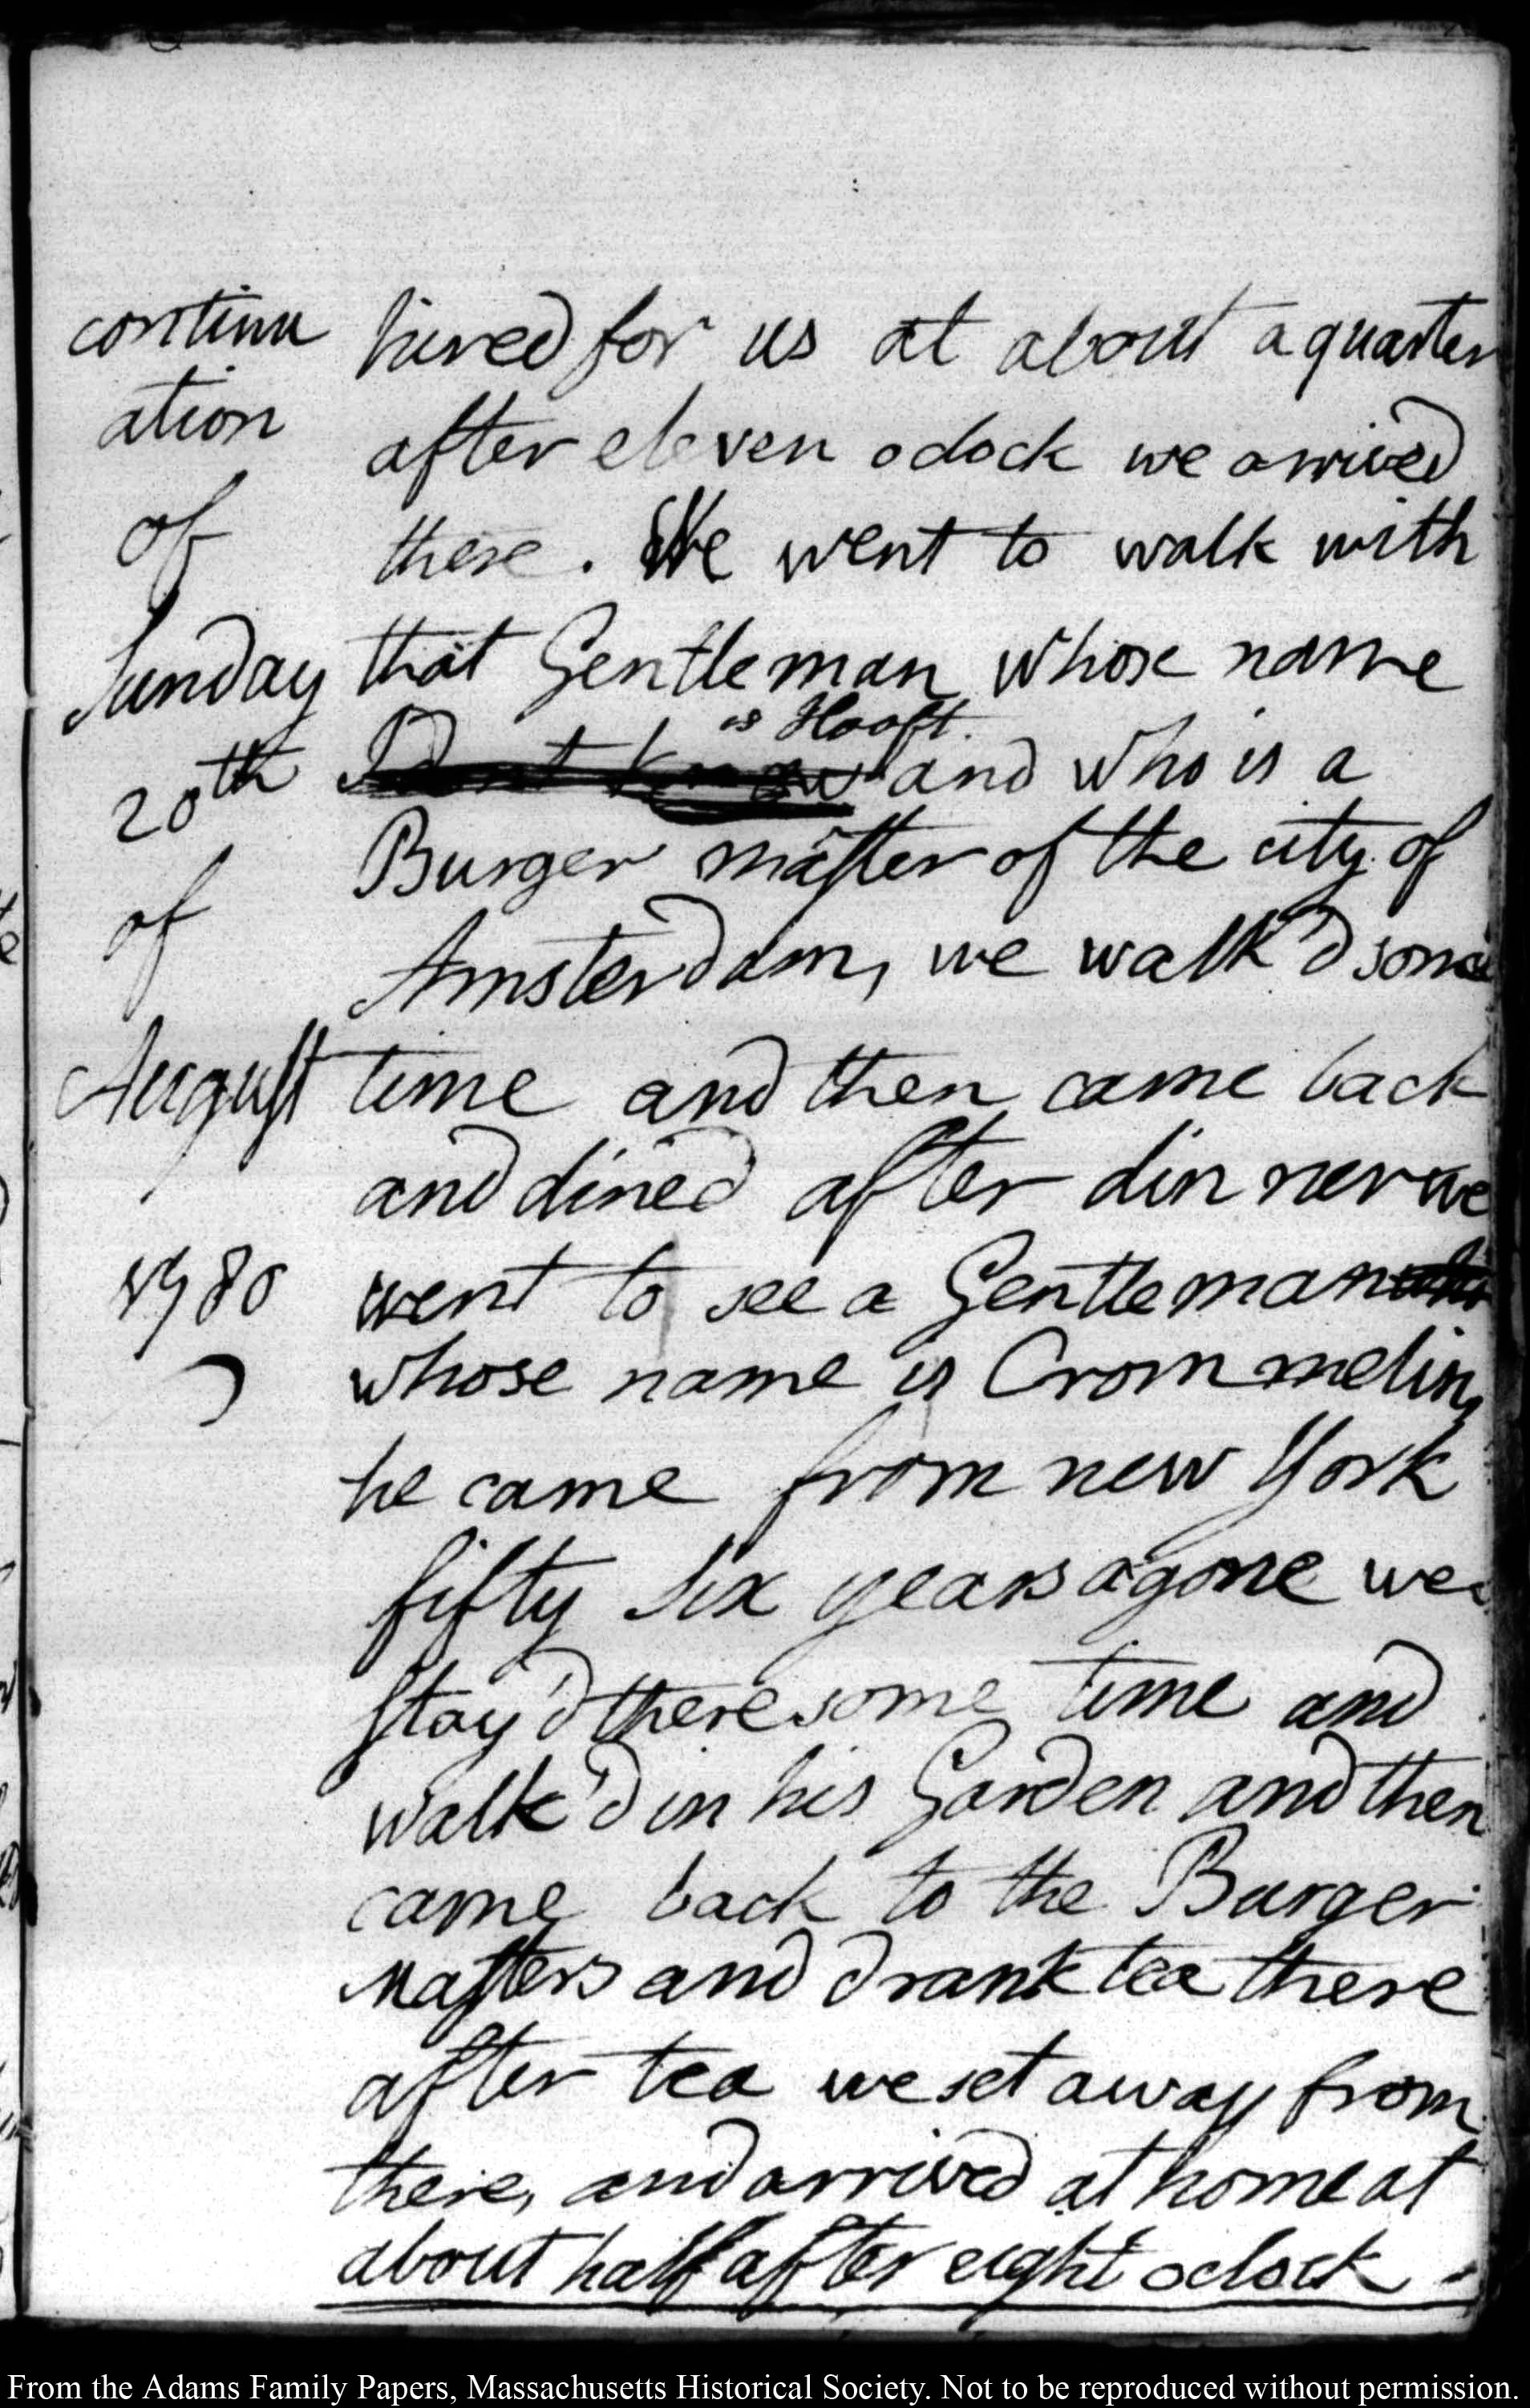 continu
ation
of
Sunday
20th
of
August
1780
hired for us at about a quarter
after eleven oclock we arrived
there. We went to walk with
that Gentleman whose name
is Hooft.
I dont know and who is a
Burger master of the city of
Amsterdam, we walk'd some
time and then came back
and dined after dinner we
went to see a Gentleman
whose name is Crommelin,
he came from new York
fifty six years agone we
stay'd there some time and
walk'd in his Garden and then
came back to the Burger
Masters and drank tea there
after tea we set away from
there, and arrived at home at
about half after eight oclock.
From the Adams Family Papers, Massachusetts Historical Society. Not to be reproduced without permission.